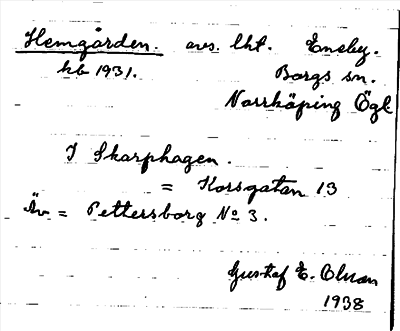 Hemgården. avs. lht. Ensby.
kb 1931. Borgs sn.
Norrköping Ögl.
I Skarphagen.
= Korsgatan 13
Äv = Pettersborg No 3.
Gustaf E. Olson
1938